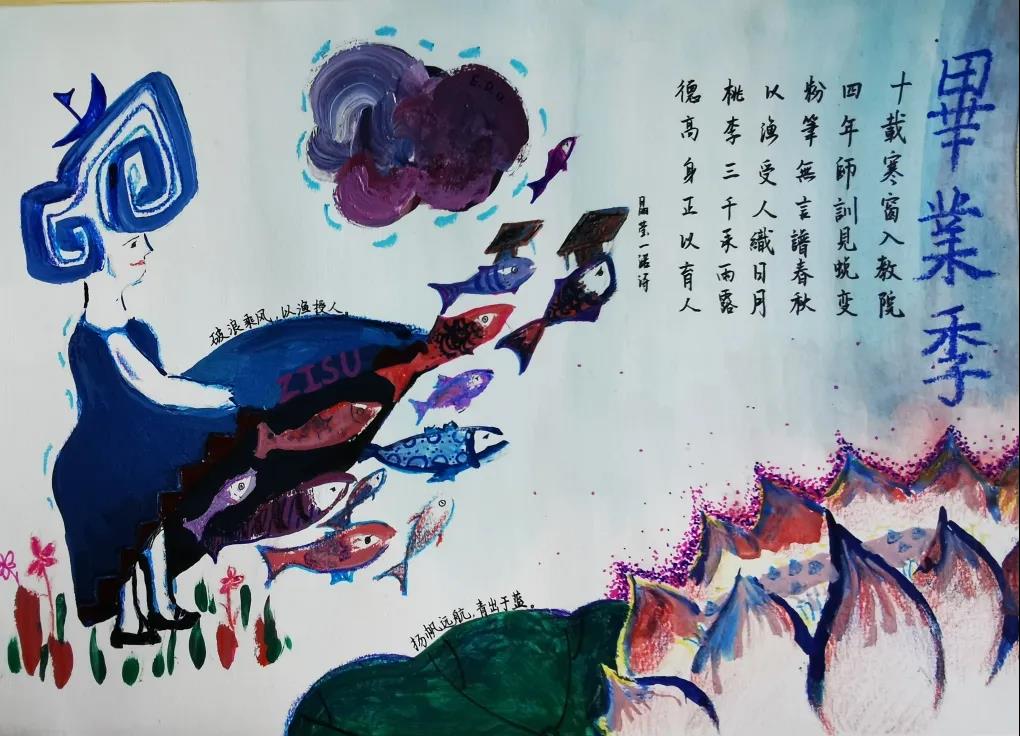 畢業季
十載寒窗入教院
四年師訓見蜕变
粉筆無言譜春秋
以漁受人織日月
桃李三千采雨露
德高身正以育人
一诺诗
E.D.U
破浪乘风,以渔授人。
ZISU
扬帆远航,青出于蓝。